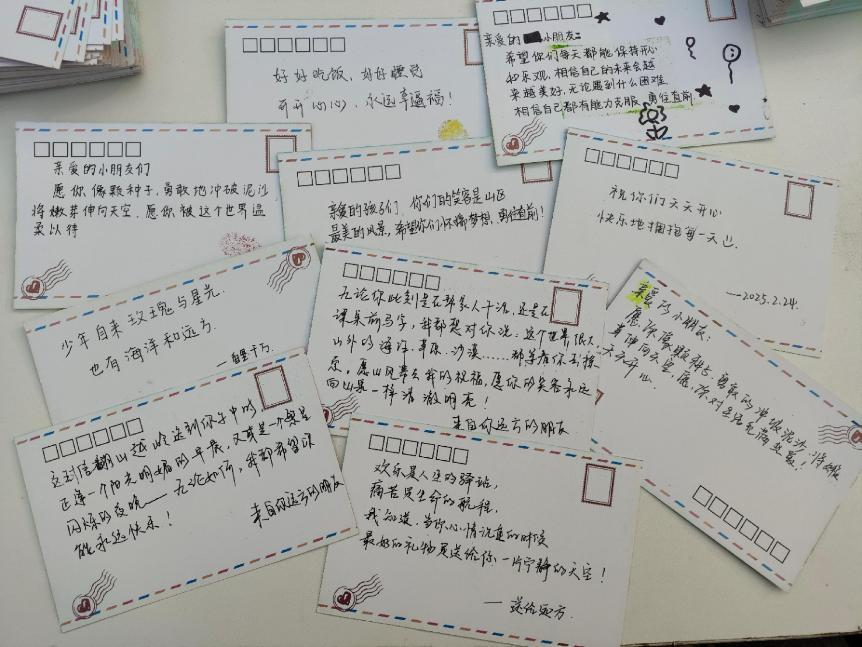 好好吃饭、好好睡觉
开开心心、永远幸逼福！
亲爱的 小朋友：
希望你们每天都能保持开心
和乐观，相信自己的未来会越
来越美好，无论遇到什么困难
相信自己都有能力克服，勇往直前
亲爱的小朋友们
愿你像颗种子，勇敢地冲破泥沙
将嫩芽伸向天空，愿你被这个世界温
柔以待
亲爱的孩子们，你们的笑容是山区
最美的风景，希望你们怀揣梦想，勇往直前！
祝你们天天开心
快乐地拥抱每一天
—2025.2.24.
少年自来玫瑰与星光.
也有海洋和远方.
无论你此刻是在帮家人干活，还是在
课桌前写字，我都想对你说：这个世界很大
山外的海洋、草原、沙漠……都等着你去探
索，愿山风带去我的祝福，愿你的笑容永远
向山泉一样清澈明亮！
来自你远方的朋友
亲爱的小朋友：
愿你像颗种子，勇敢的冲破泥沙，将嫩
芽伸向天空，愿你对生活充满热爱！
天天开心.
这封信翻山越岭送到你手中时
正逢一个阳光明媚的早晨，又或是一个繁星
闪烁的夜晚——无论如何，我都希望你
能永远快乐！
来自你远方的朋友
欢乐是人生的驿站，
痛苦是生命的航程.
我知道，当你心情沉重的时候
最好的礼物是送给你一片宁静的天空！
—送给远方.